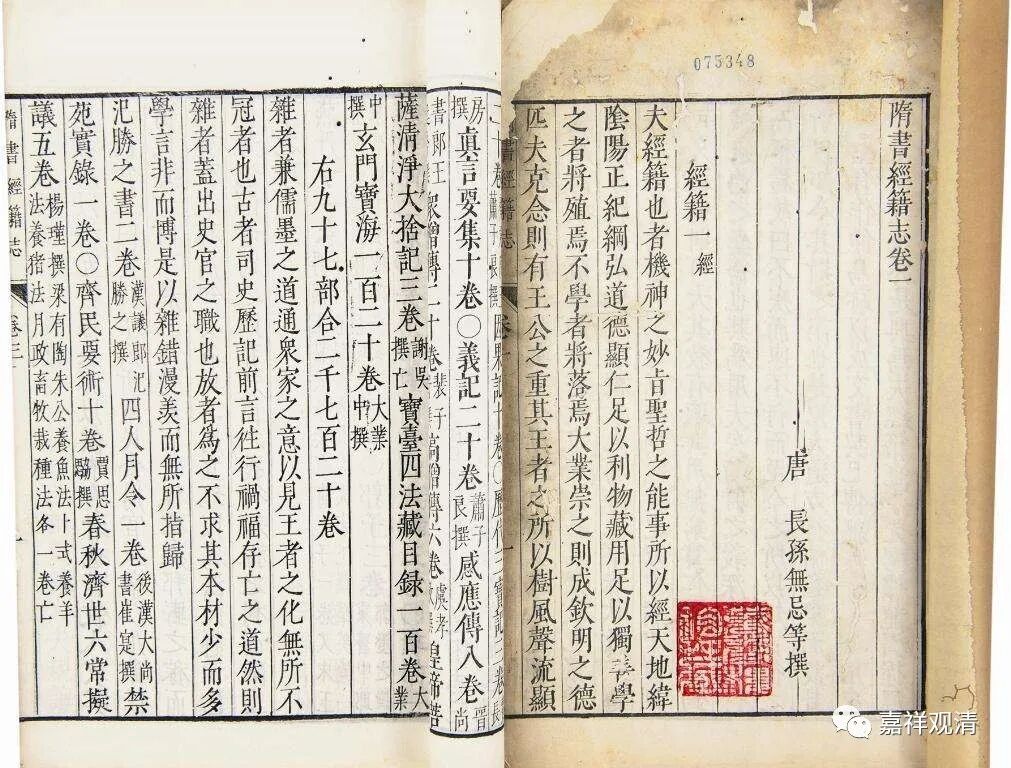 075348
隋書經籍志卷一
唐 長孫無忌等撰
經籍一 經
夫經籍也者機神之妙㫖聖哲之能事所以經天地緯
隂陽正紀綱弘道德顯仁足以利物藏用足以獨善學
之者將殖焉不學者將落焉大業崇之則成欽明之德
匹夫克念則有王公之重其王者之所以樹風聲流顯
書經籍志
房
撰
眞言要集十卷〇義記二十卷 蕭子良撰 感應傳八卷 晉尚
書郎王
薩清淨大捨記三卷 謝吴撰亡 寶臺四法藏目録一百卷 大業
中撰 玄門寶海一百二十卷 大業中撰
右九十七部合二千七百二十卷
雜者兼儒墨之道通衆家之意以見王者之化無所不
冠者也古者司史歷記前言徃行禍福存亡之道然則
雜者蓋出史官之職也放者爲之不求其本材少而多
學言非而博是以雜錯漫羨而無所指歸
氾勝之書二卷 漢議郎氾勝之撰 四人月令一卷 後漢大尚書崔寔撰 禁
苑實錄一卷〇齊民要術十卷 賈思勰撰 春秋濟世六常擬
議五卷 楊瑾撰梁有陶朱公養魚法卜式養羊法養猪法月政畜牧栽種法各一卷亡
隋書經籍志 卷三
嘉祥观清